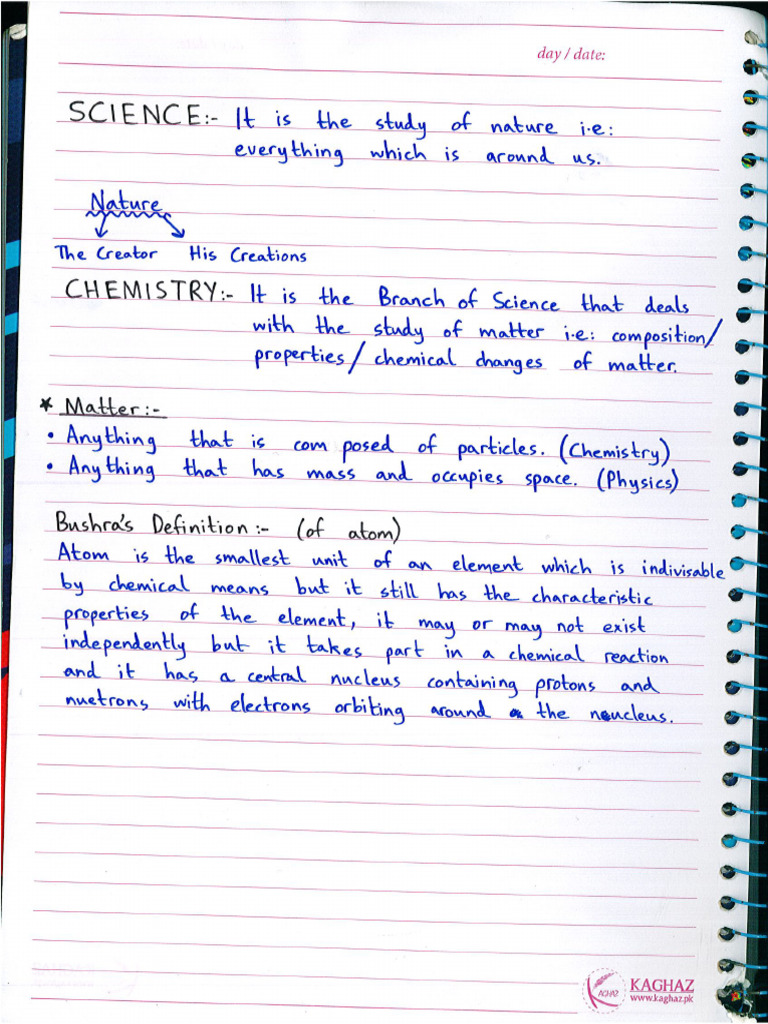 day / date:
SCIENCE:- It is the study of nature i.e:
everything which is around us.
Nature
The Creator His Creations
CHEMISTRY:- It is the Branch of Science that deals
with the study of matter i.e: composition/
properties/ chemical changes of matter.
* Matter:-
• Anything that is com posed of particles. (Chemistry)
• Anything that has mass and occupies space. (Physics)
Bushra's Definition:- (of atom)
Atom is the smallest unit of an element which is indivisable
by chemical means but it still has the characteristic
properties of the element, it may or may not exist
independently but it takes part in a chemical reaction
and it has a central nucleus containing protons and
nuetrons with electrons orbiting around the neucleus.
KAGHAZ
www.kaghaz.pk